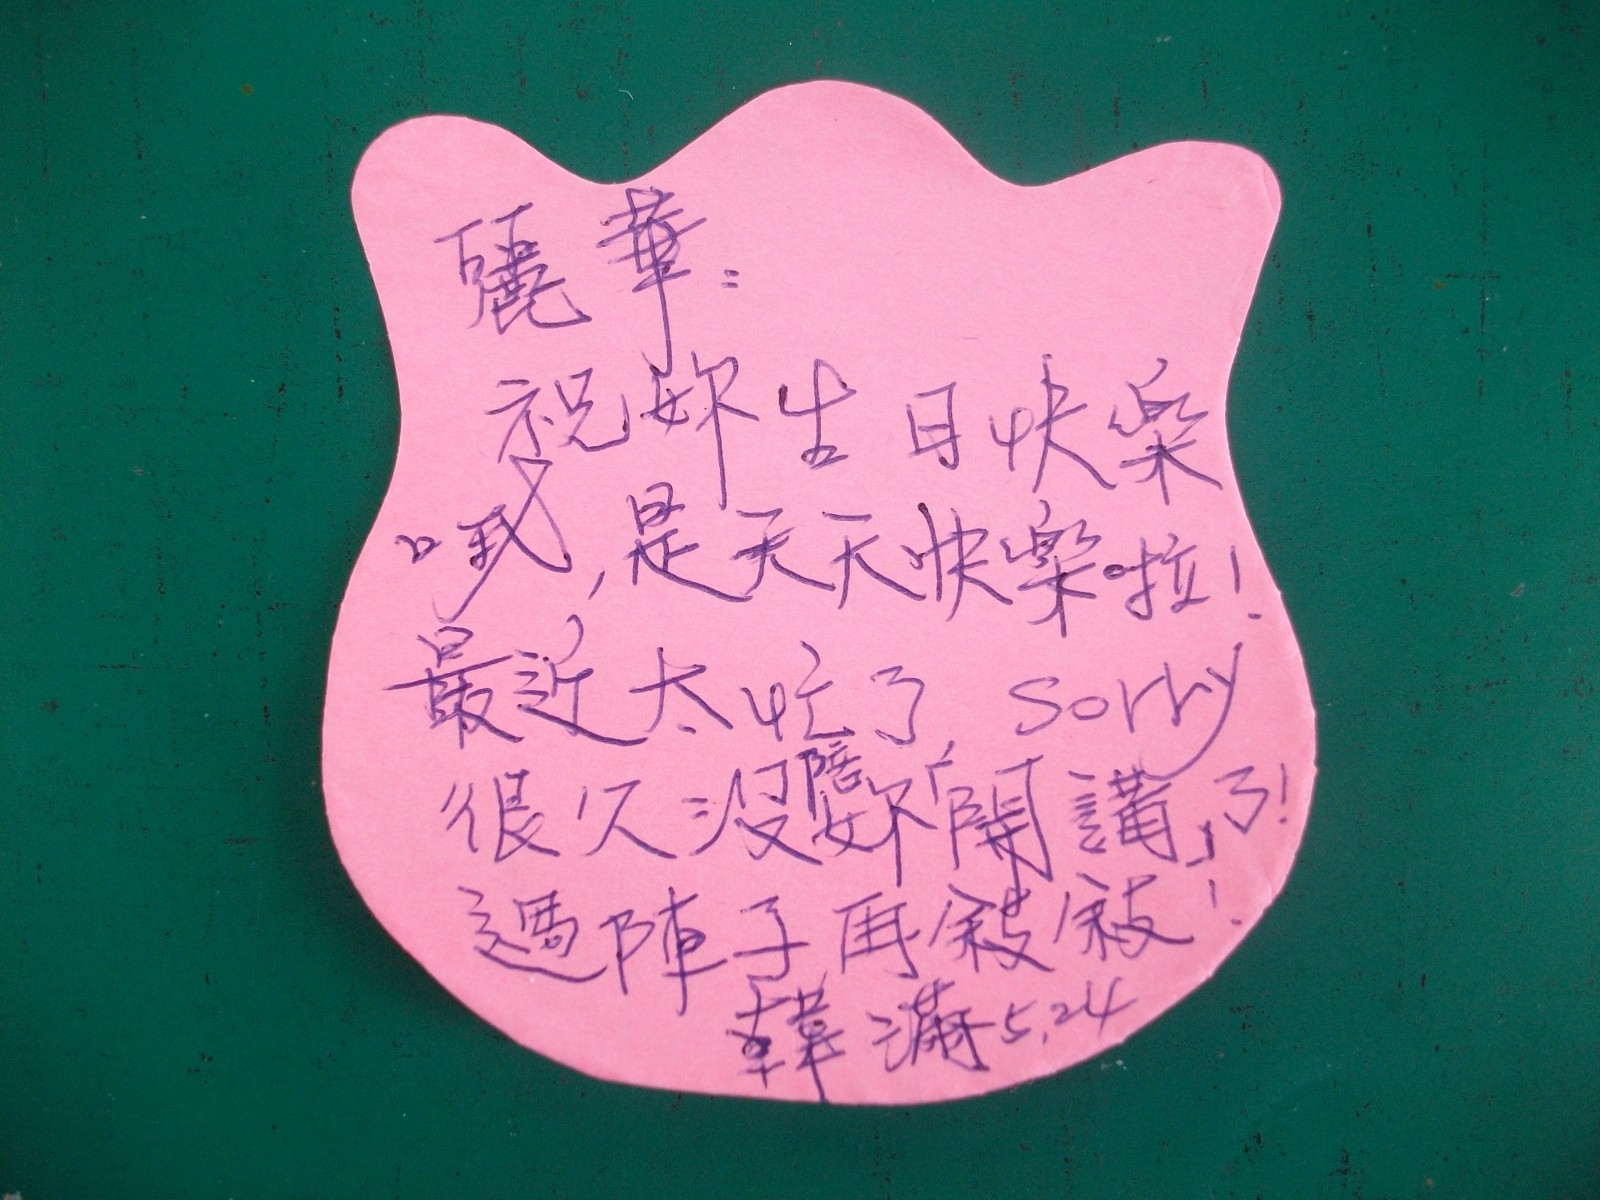 麗華：
祝妳生日快樂
哦，是天天快樂啦！
最近太忙了，sorry
很久沒陪妳「開講」了！
過陣子再敍敍！
韓滿 5.24